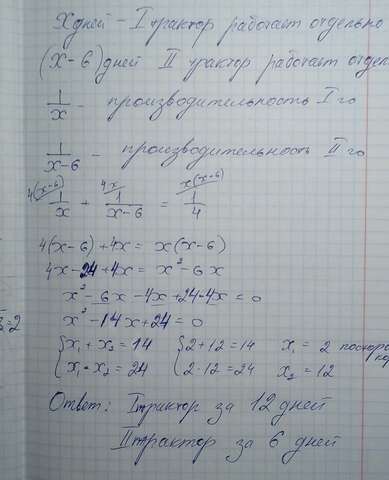 x дней - I трактор работает отдельно
(x-6) дней II трактор работает отдел
1/x - производительность I го
1/(x-6) - производительность II го
4(x-6) 1/x + 4x 1/(x-6) = x(x-6) 1/4
4(x-6)+4x = x(x-6)
4x-24+4x = x²-6x
x²-6x-4x+24-4x=0
x²-14x+24=0
{x₁+x₂=14 {2+12=14 x₁=2 посторо
{x₁·x₂=24 {2·12=24 x₂=12
Ответ: I трактор за 12 дней
II трактор за 6 дней
=2